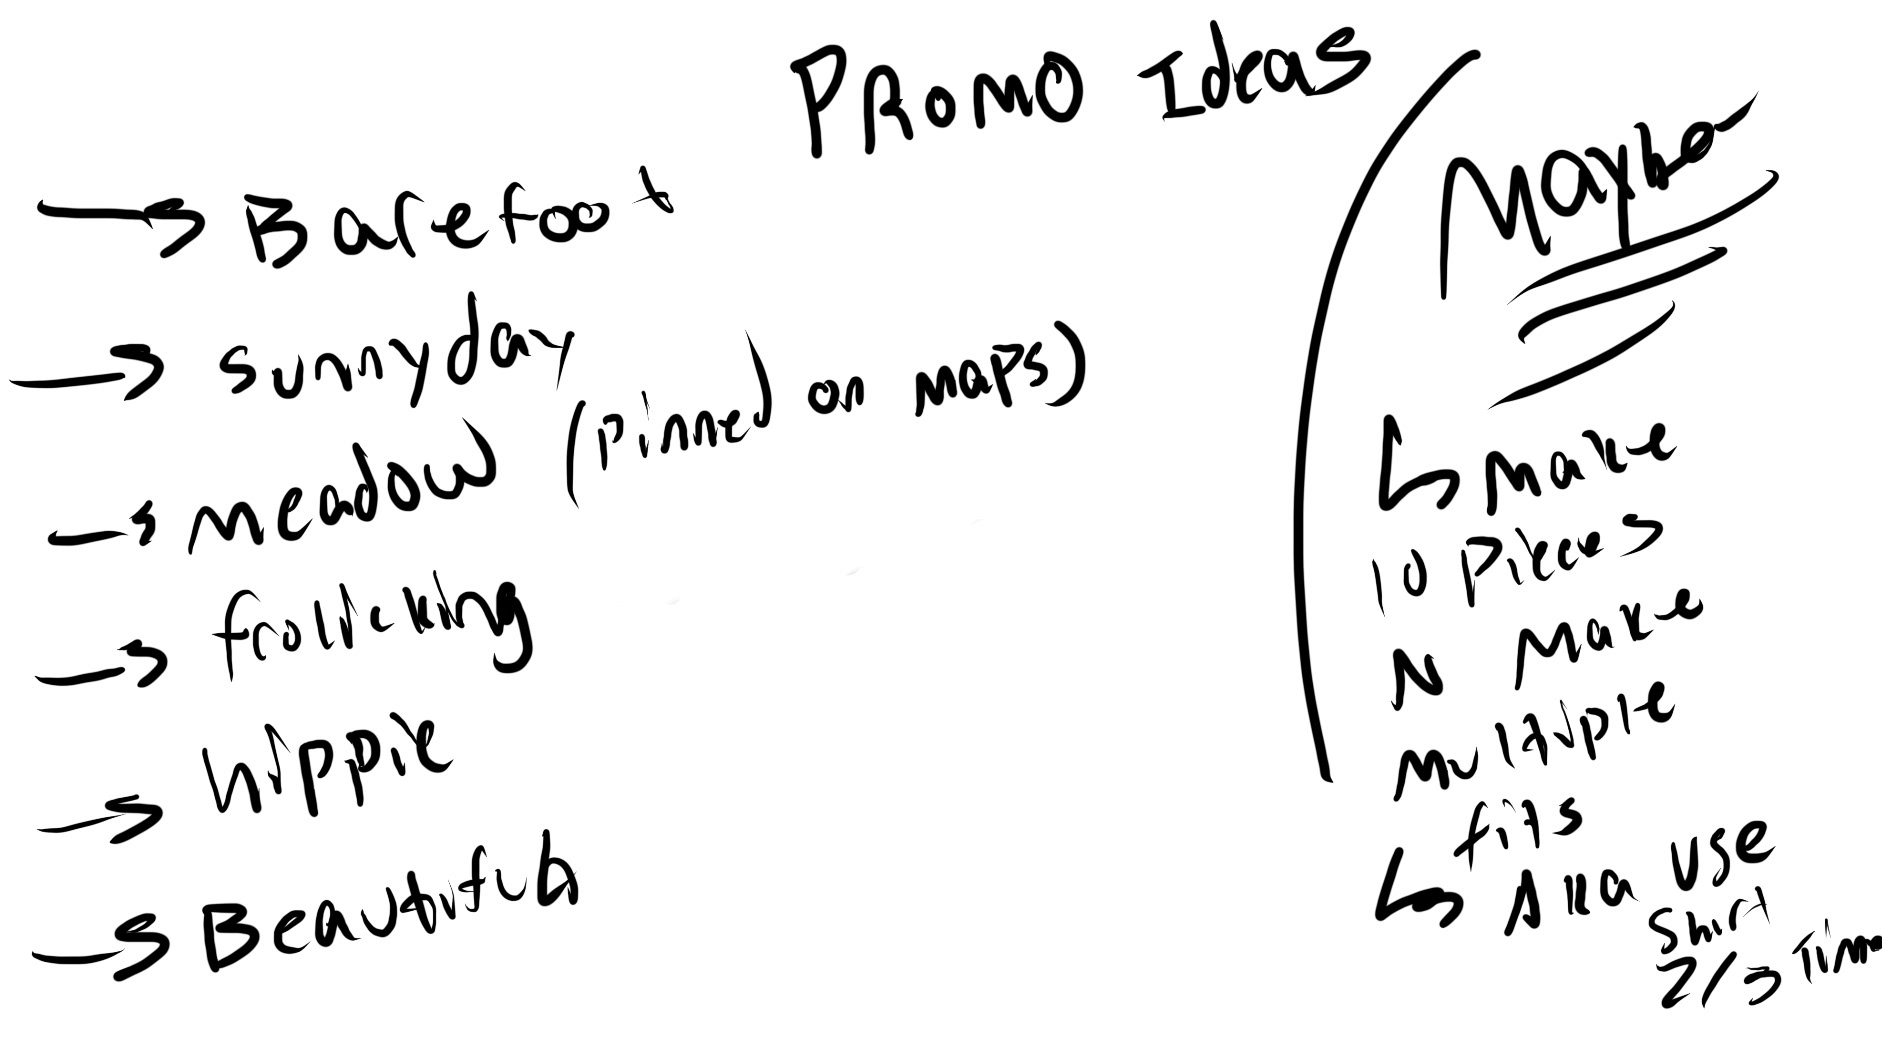 Promo Ideas
→ Barefoot
→ sunnyday
→ meadow (pinned on maps)
→ frolicking
→ hippie
→ Beautiful
Maybe
↳ make
10 pieces
N make
multiple
fits
↳ Aka use
shirt
2/3 Time